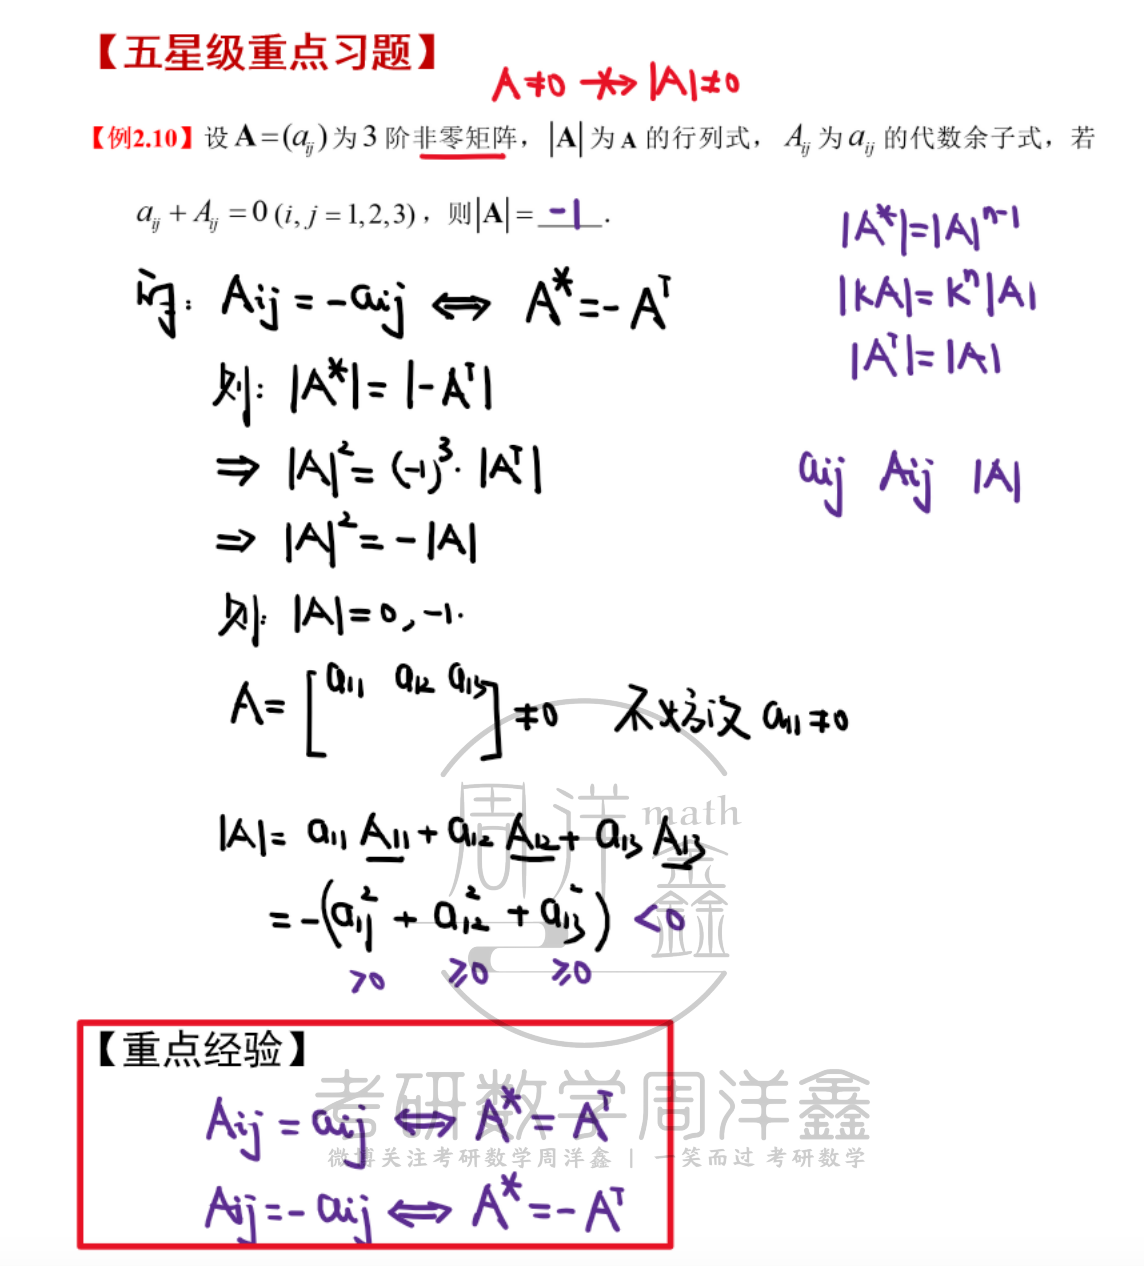 【五星级重点习题】
A≠0 ⇏ |A|≠0
【例2.10】设 A=(aᵢⱼ)为 3 阶非零矩阵，|A| 为 A 的行列式，Aᵢⱼ 为 aᵢⱼ 的代数余子式，若
aᵢⱼ + Aᵢⱼ = 0 (i, j = 1,2,3)，则|A| = -1 .
|A*|=|A|ⁿ⁻¹
|kA|=kⁿ|A|
|Aᵀ|=|A|
aij Aij |A|
Aij = -aij ⟺ A* = -Aᵀ
则: |A*| = |-Aᵀ|
⇒ |A|² = (-1)³·|Aᵀ|
⇒ |A|² = -|A|
则: |A|=0,-1.
A= [a₁₁ a₁₂ a₁₃] ≠0 不妨设 a₁₁≠0
|A|= a₁₁A₁₁ + a₁₂A₁₂ + a₁₃A₁₃
= -(a₁₁² + a₁₂² + a₁₃²) <0
>0 ≥0 ≥0
周洋鑫 math
【重点经验】
Aij = aij ⟺ A* = Aᵀ
Aij = -aij ⟺ A* = -Aᵀ
考研数学周洋鑫
微博关注考研数学周洋鑫 | 一笑而过 考研数学